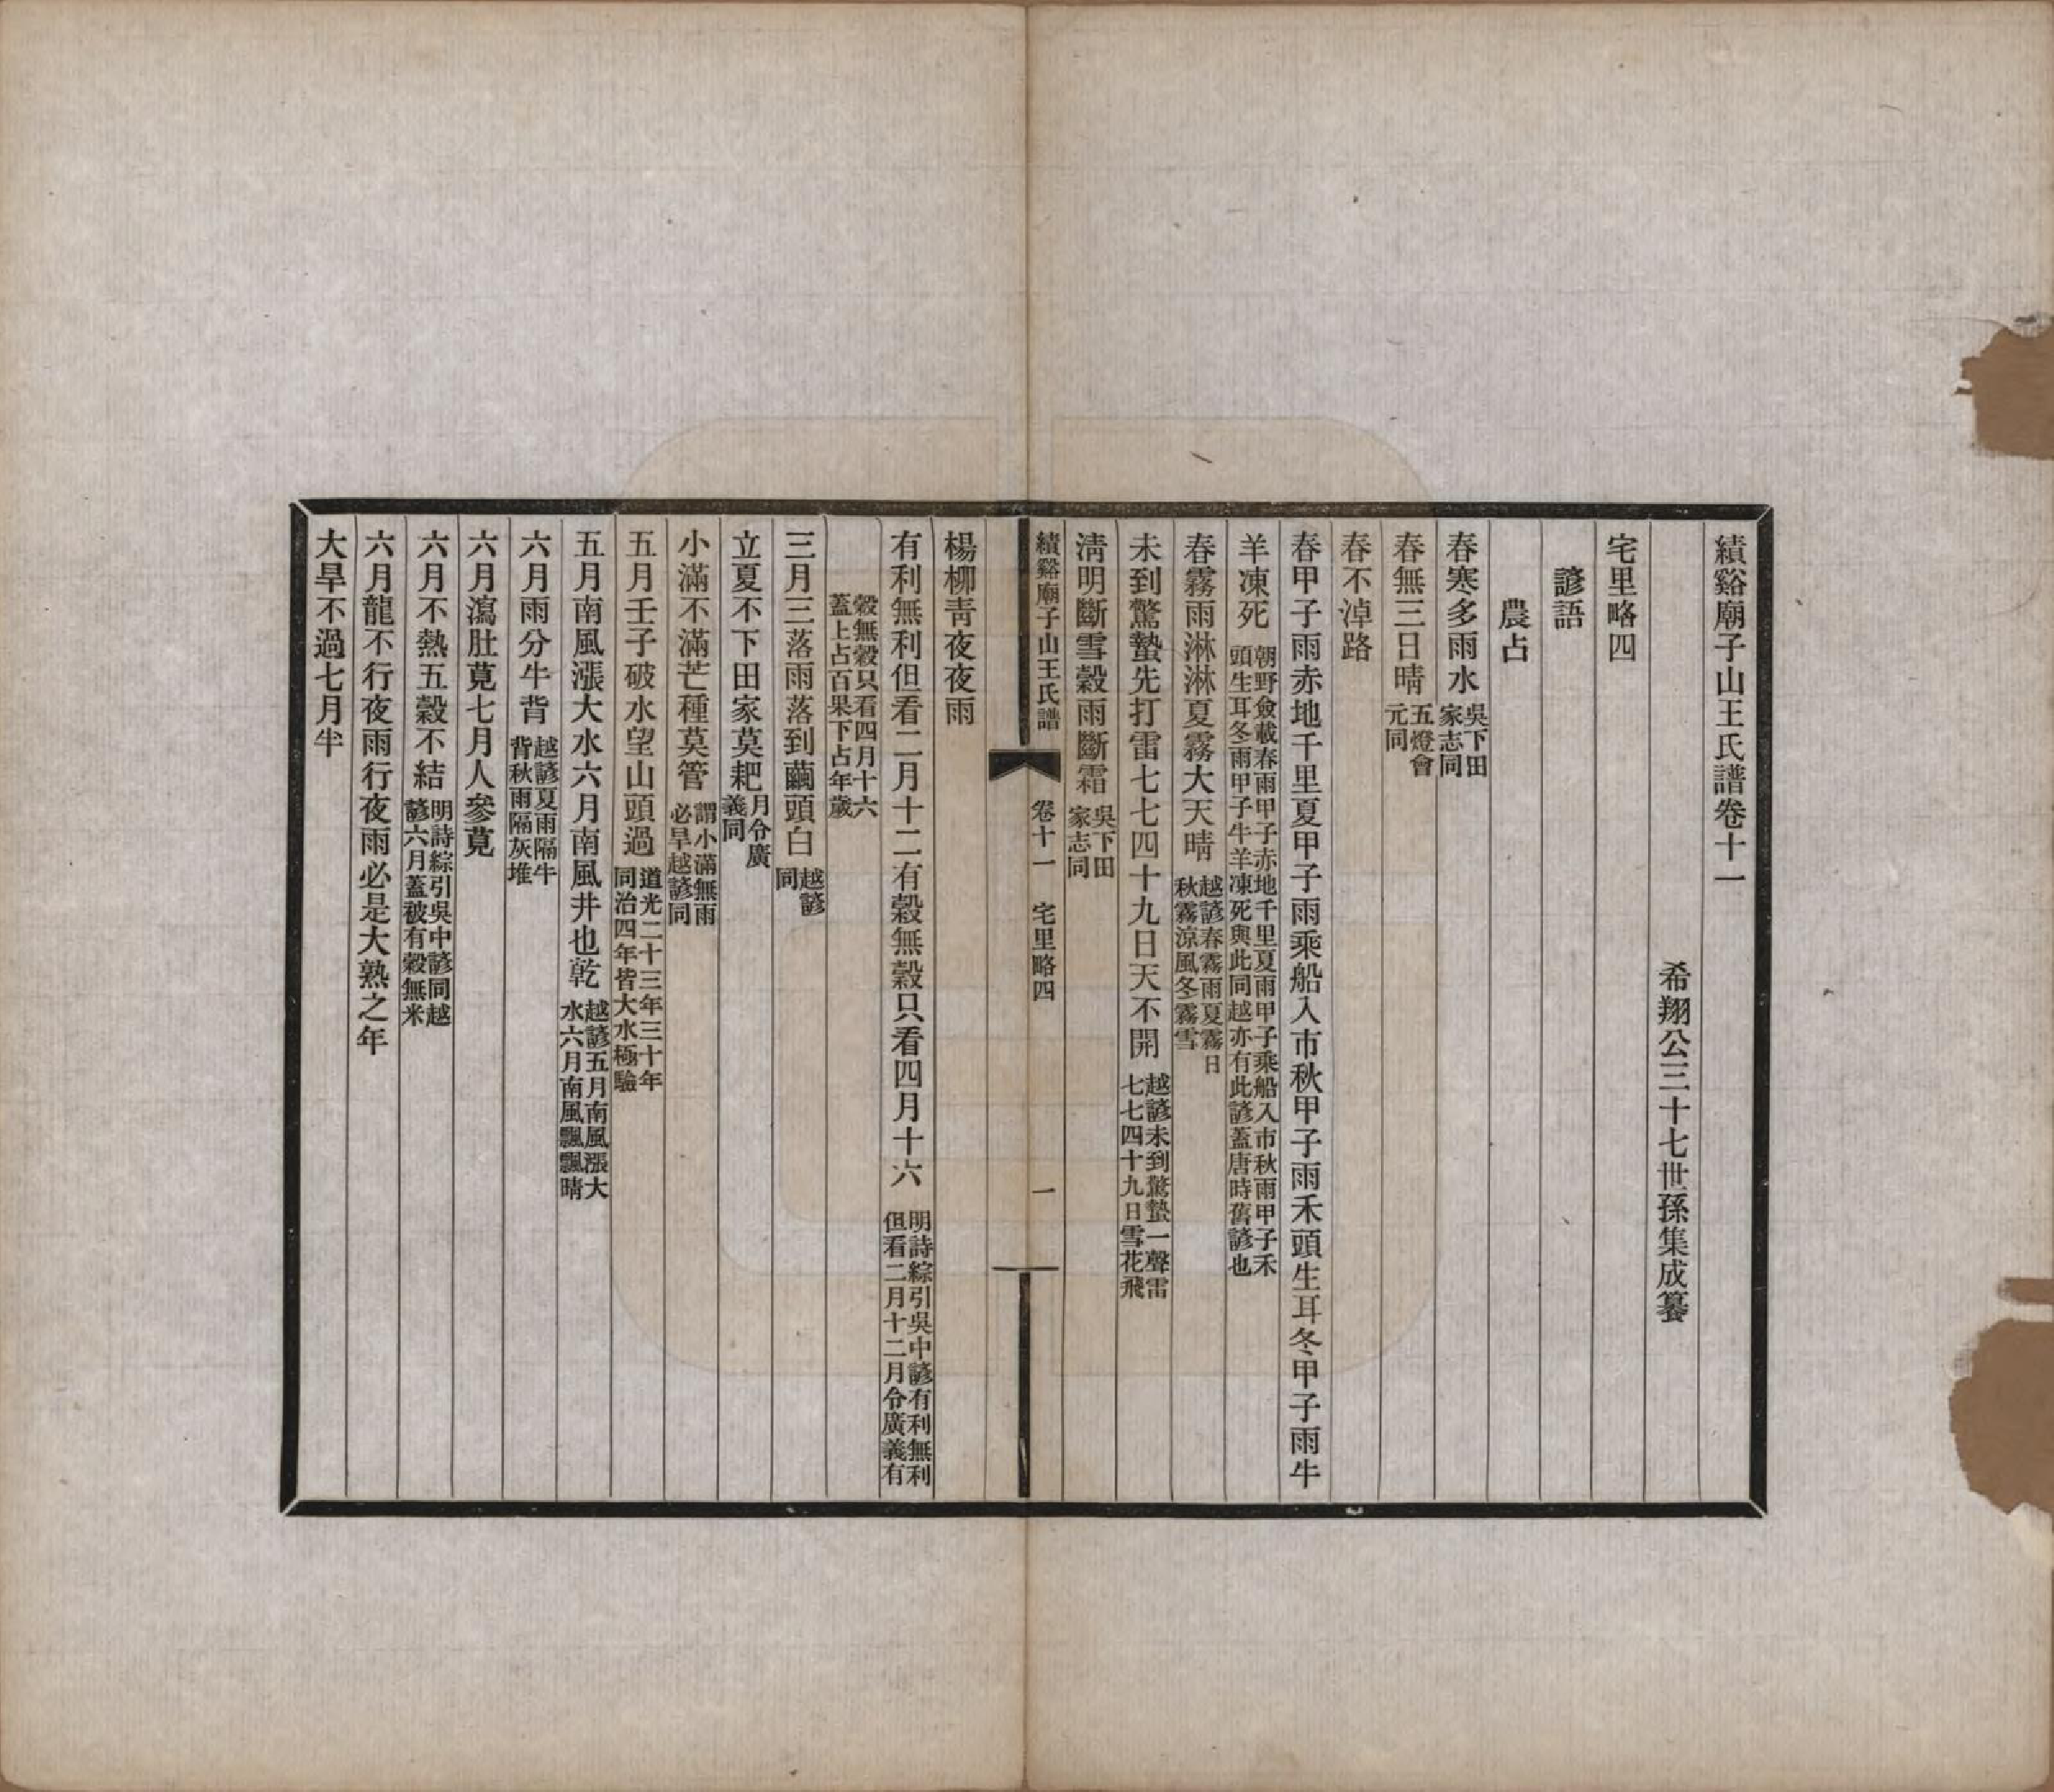 績谿廟子山王氏譜卷十一
希翔公三十七世孫集成纂
宅里略四
諺語
農占
春寒多雨水 吳下田家志同
春無三日晴 五燈會元同
春不淖路
春甲子雨赤地千里夏甲子雨乘船入市秋甲子雨禾頭生耳冬甲子雨牛
羊凍死 朝野僉載春雨甲子赤地千里夏雨甲子乘船入市秋雨甲子禾頭生耳冬雨甲子牛羊凍死與此同越亦有此諺蓋唐時舊諺也
春霧雨淋淋夏霧大天晴 越諺春霧雨夏霧日秋霧涼風冬霧雪
未到驚蟄先打雷七七四十九日天不開 越諺未到驚蟄一聲雷七七四十九日雪花飛
淸明斷雪穀雨斷霜 吳下田家志同
績谿廟子山王氏譜 卷十一 宅里略四 一
楊柳靑夜夜雨
有利無利但看二月十二有穀無穀只看四月十六 明詩綜引吳中諺有利無利但看二月十二月令廣義有
穀無穀只看四月十六蓋上占百果下占年歲
三月三落雨落到繭頭白 越諺同
立夏不下田家莫耙 月令廣義同
小滿不滿芒種莫管 謂小滿無雨必旱越諺同
五月壬子破水望山頭過 道光二十三年三十年同治四年皆大水極驗
五月南風漲大水六月南風井也乾 越諺五月南風漲大水六月南風飄飄晴
六月雨分牛背 越諺夏雨隔牛背秋雨隔灰堆
六月瀉肚莧七月人參莧
六月不熱五穀不結 明詩綜引吳中諺同越諺六月蓋被有穀無米
六月龍不行夜雨行夜雨必是大熟之年
大旱不過七月半